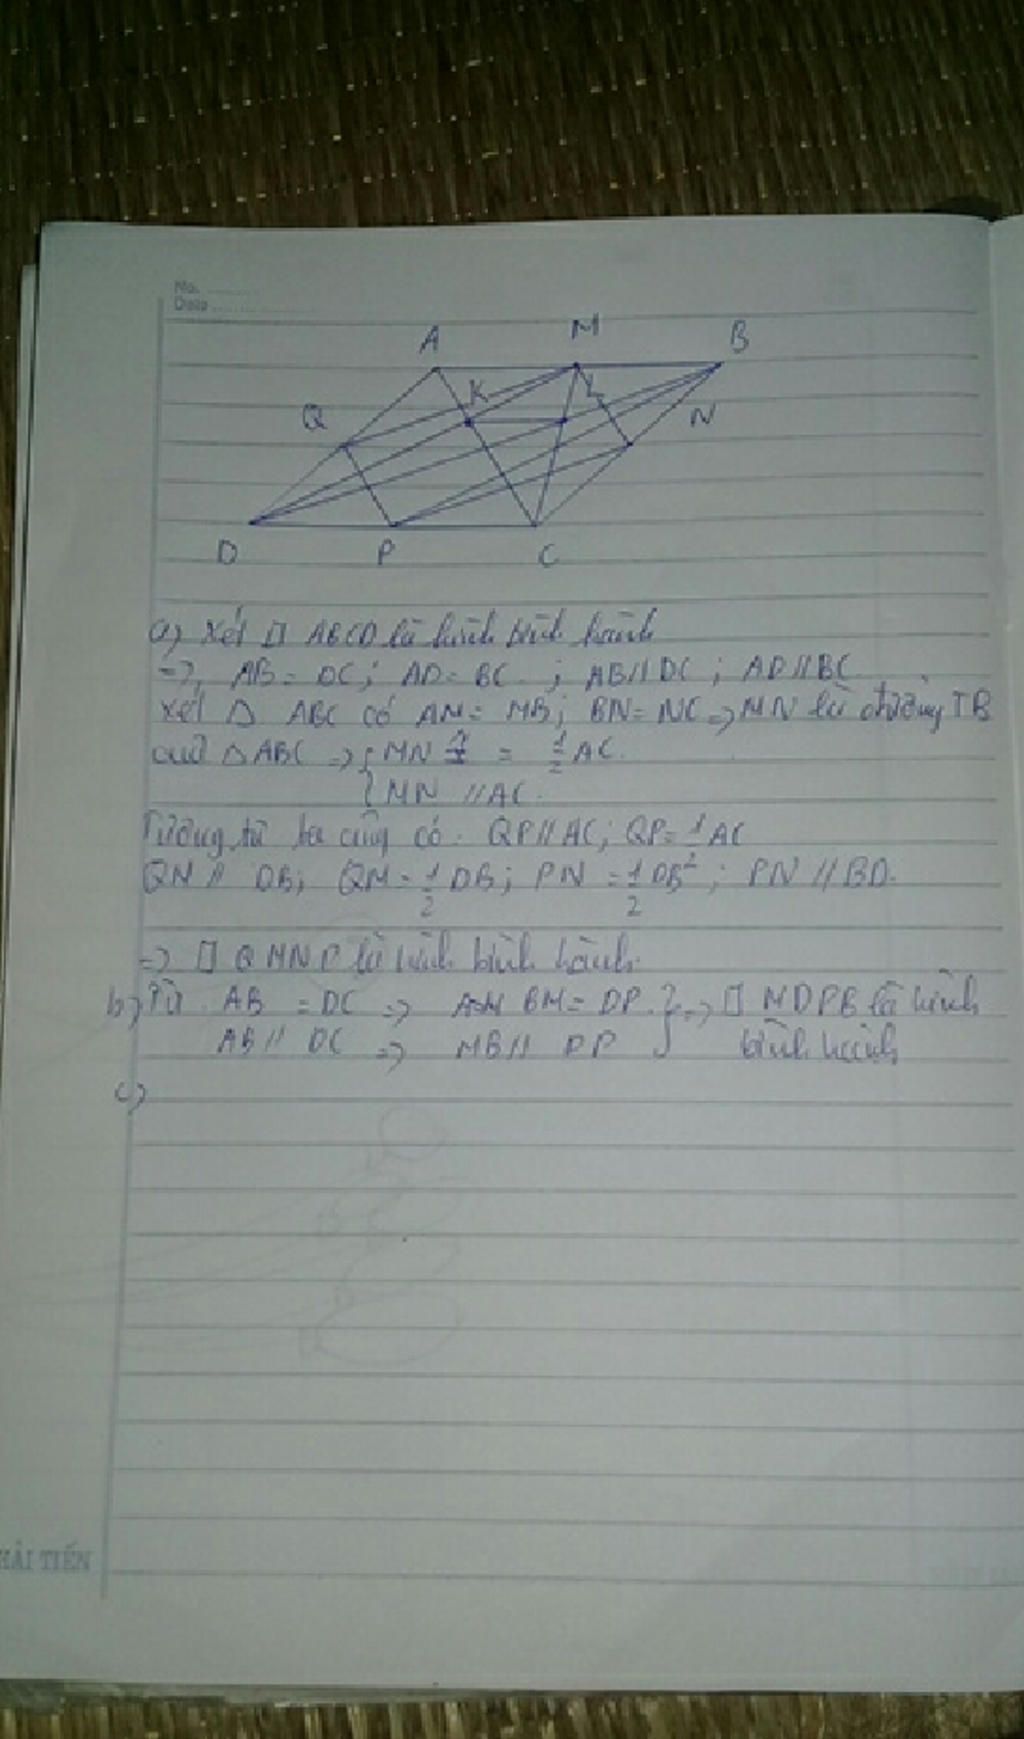 No. ........
Date ................
A M B
K L
Q N
D P C
a) Xét □ ABCD là hình bình hành
=> AB = DC ; AD = BC ; AB // DC ; AD // BC
Xét △ ABC có AM = MB ; BN = NC => MN là đường TB
của △ ABC => { MN = 1/2 AC.
{ MN // AC.
Tương tự ta cũng có. QP // AC ; QP = 1/2 AC
QM // DB ; QM = 1/2 DB ; PN = 1/2 DB ; PN // BD.
=> □ QMNP là hình bình hành.
b) Từ AB = DC => BM = DP. } => □ MDPB là hình
AB // DC => MB // DP } bình hành
c)
HẢI TIẾN